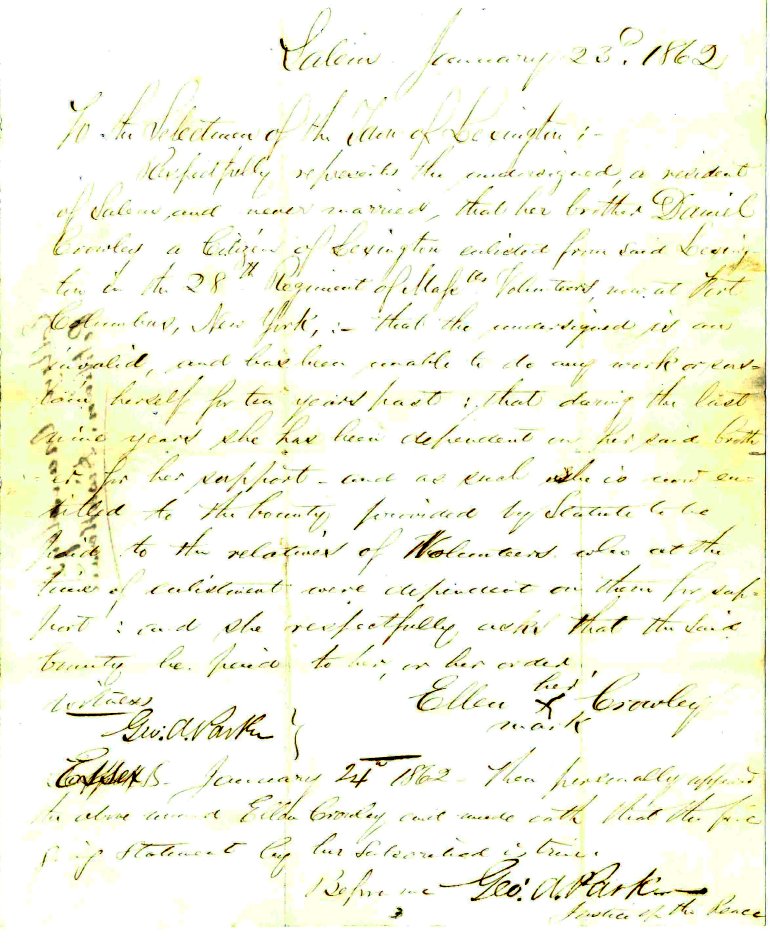 Salem January 23d. 1862
To the Selectmen of the Town of Lexington :-
Respectfully represents the undersigned, a resident
of Salem, and never married, that her brother Daniel
Crowley a Citizen of Lexington enlisted from said Lexing-
ton in the 28th Regiment of Mass tts Volunteers, now at Fort
Columbus, New York, :- that the undersigned is an
invalid, and has been unable to do any work or sus-
tain herself for ten years past : that during the last
nine years she has been dependent on her said broth-
-er for her support - and as such she is now en-
titled to the bounty provided by Statute to be
paid to the relatives of Volunteers who at the
time of enlistment were dependent on them for sup-
port : and she respectfully asks that the said
bounty be paid to her, or her order.
Witness
Geo. A. Parker
Ellen her X mark Crowley
Essex ss. January 24th 1862 - Then personally appeared
the above named Ellen Crowley and made oath that the fore
going statement by her subscribed is true.
Before me Geo. A. Parker
Justice of the Peace